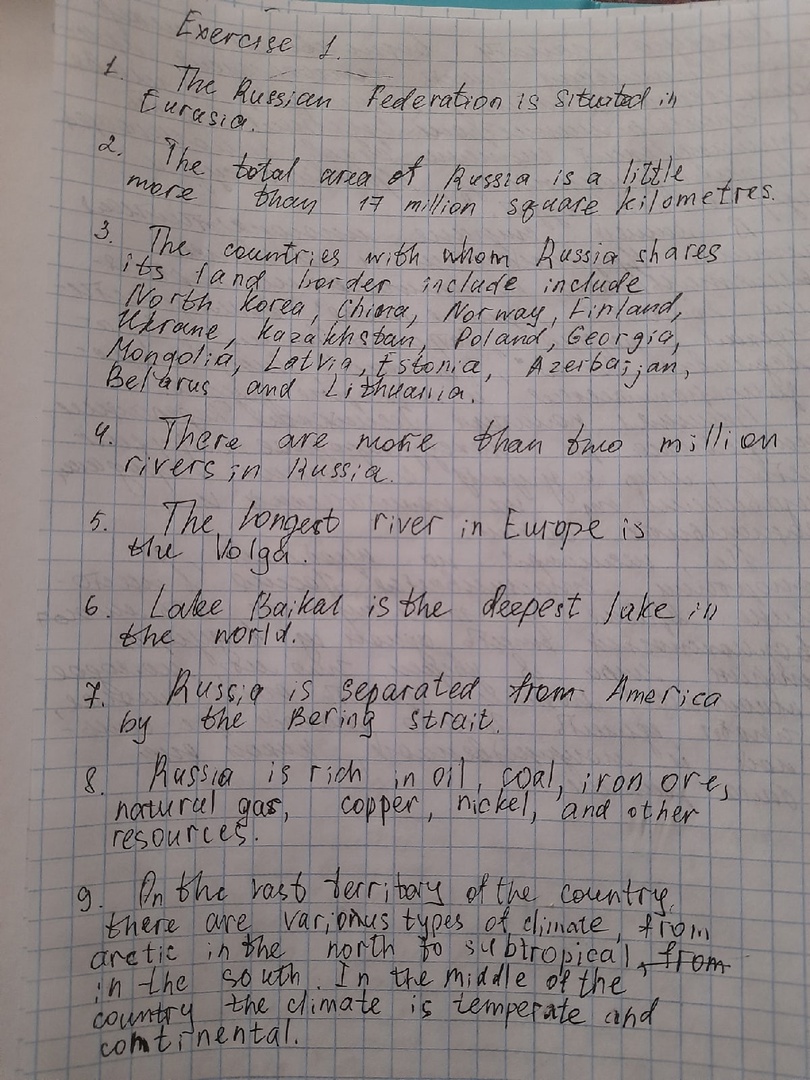 Exercise 1.
1. The Russian Federation is situated in
Eurasia.
2. The total area of Russia is a little
more than 17 million square kilometres.
3. The countries with whom Russia shares
its land border include include
North Korea, China, Norway, Finland,
Ukrane, Kazakhstan, Poland, Georgia,
Mongolia, Latvia, Estonia, Azerbaijan,
Belarus and Lithuania.
4. There are more than two million
rivers in Russia.
5. The longest river in Europe is
the Volga.
6. Lake Baikal is the deepest lake in
the world.
7. Russia is separated from America
by the Bering strait.
8. Russia is rich in oil, coal, iron ore,
natural gas, copper, nickel, and other
resources.
9. On the vast territory of the country,
there are various types of climate, from
arctic in the north to subtropical, from
in the south. In the middle of the
country the climate is temperate and
continental.